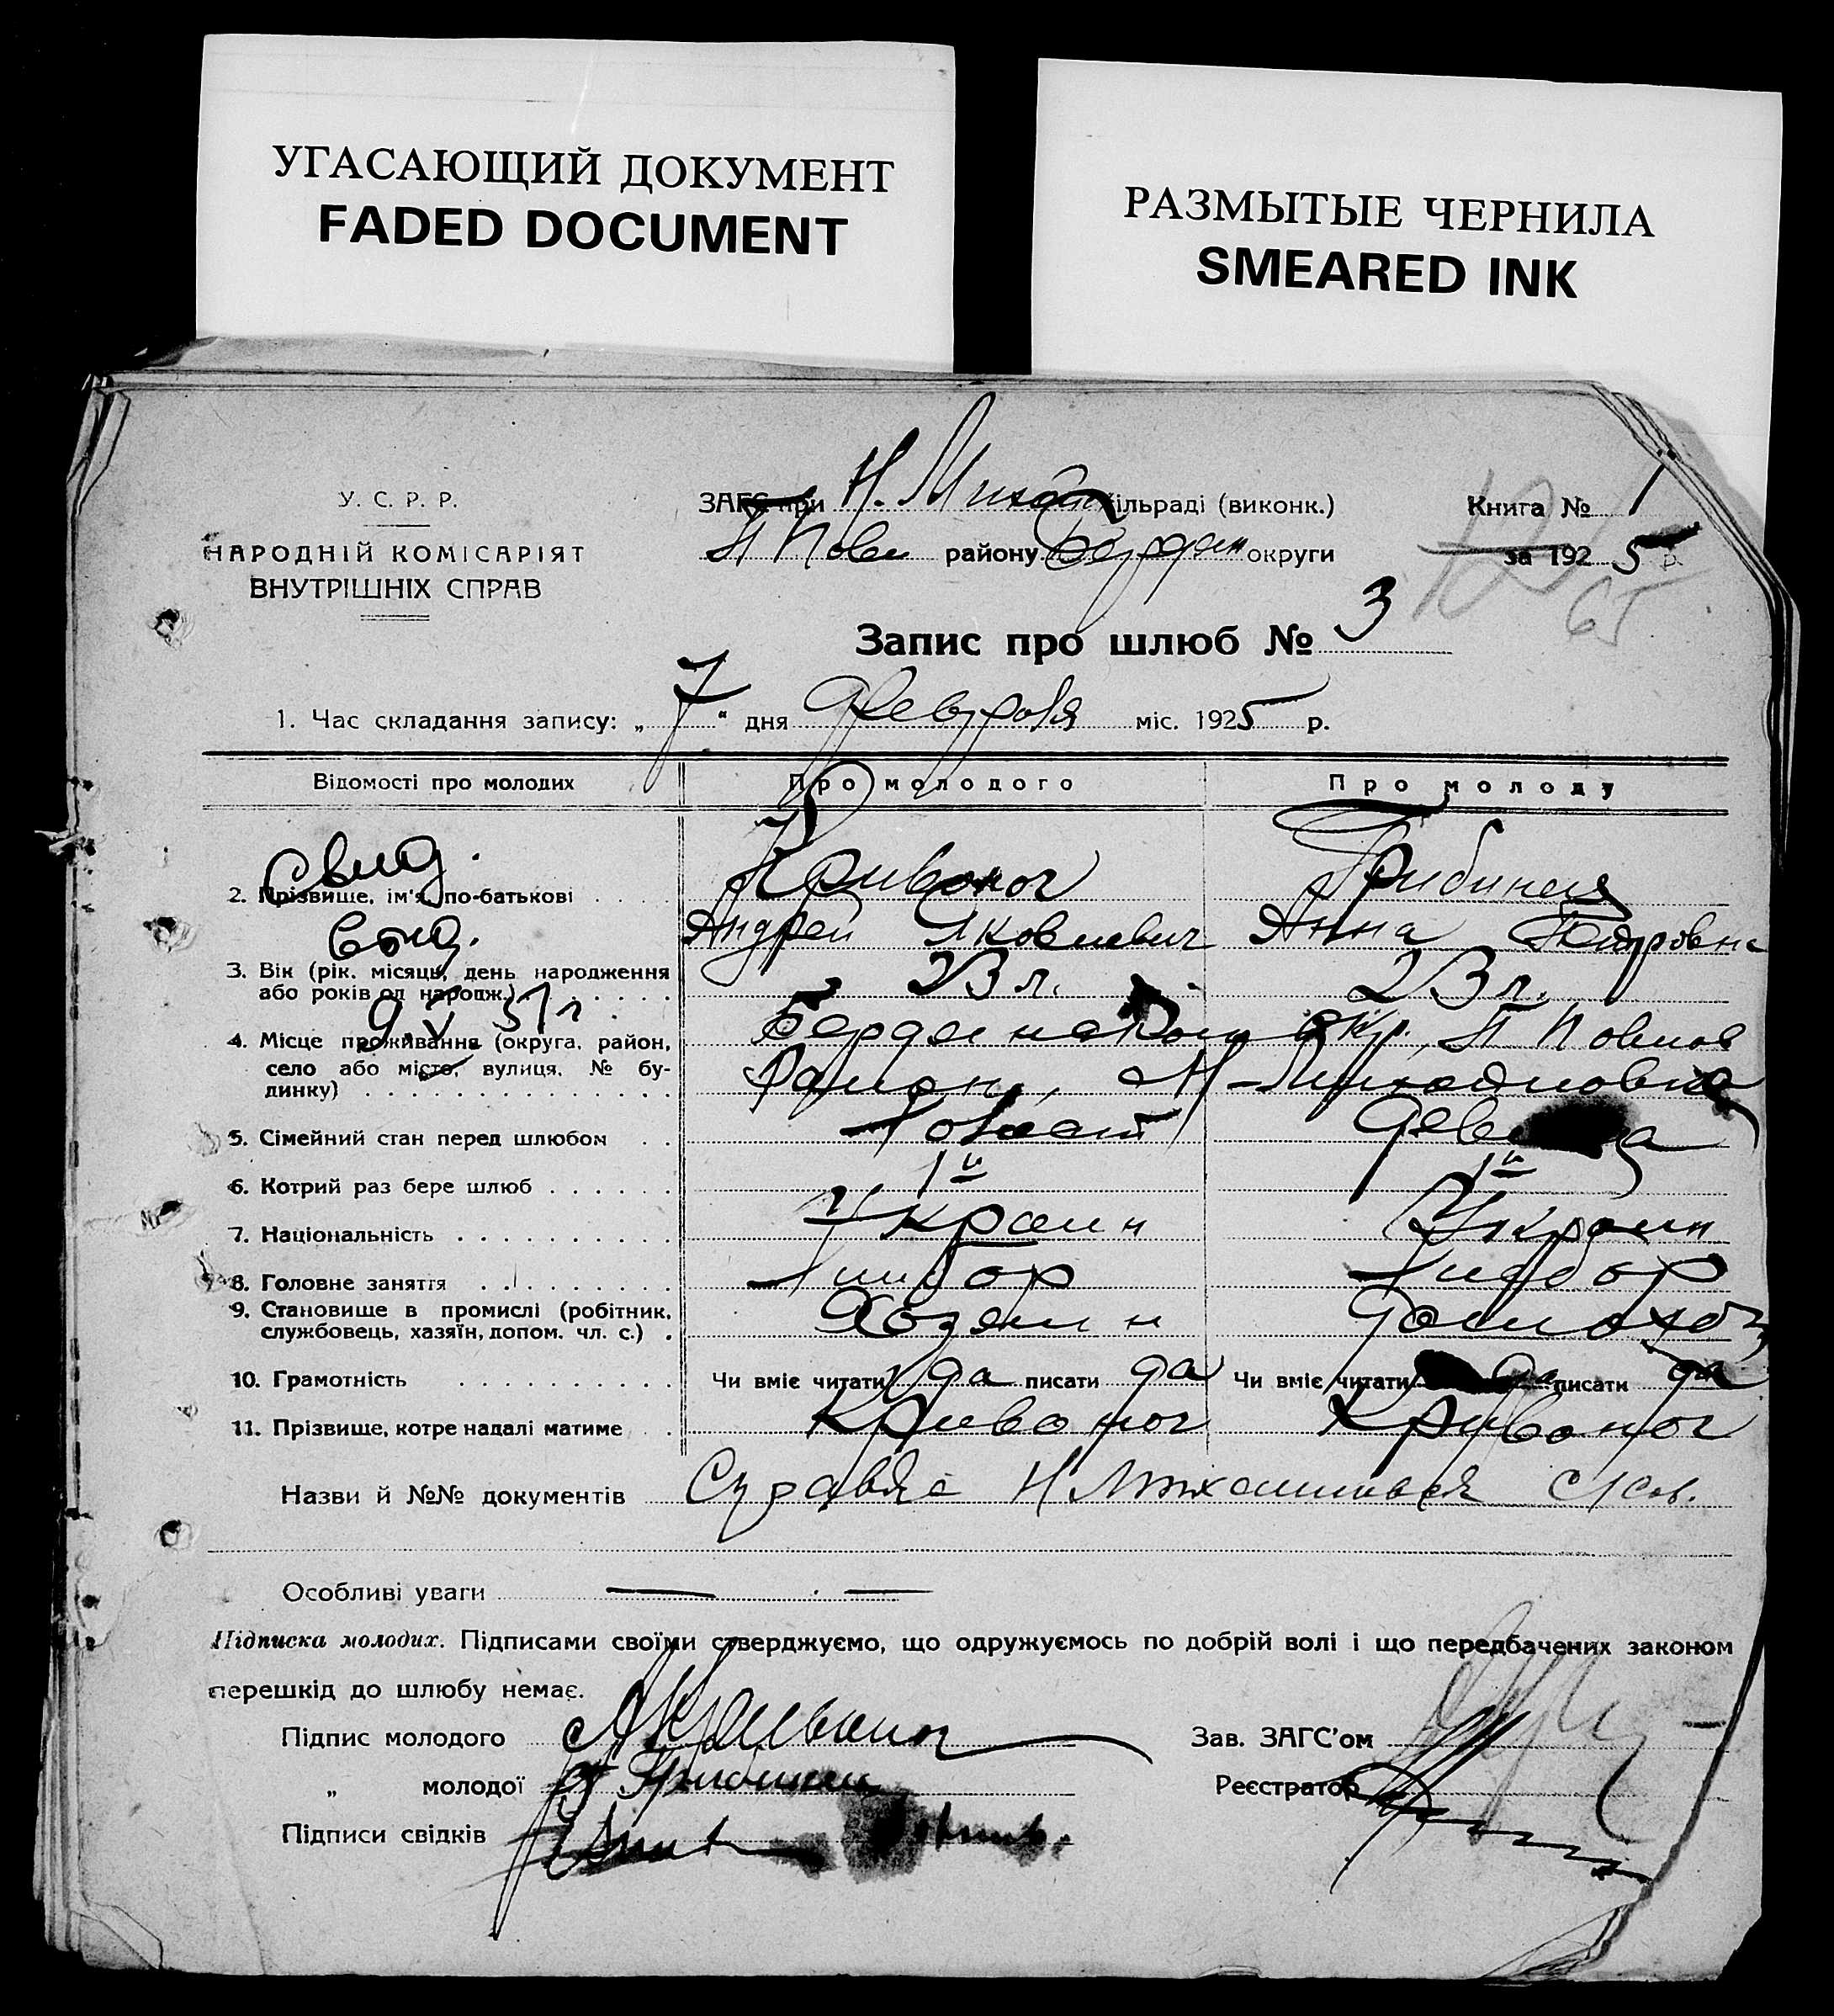 УГАСАЮЩИЙ ДОКУМЕНТ
FADED DOCUMENT
РАЗМЫТЫЕ ЧЕРНИЛА
SMEARED INK
У. С. Р. Р.
НАРОДНІЙ КОМІСАРІЯТ
ВНУТРІШНІХ СПРАВ
ЗАГС при Н. Михай сільраді (виконк.)
району Бердян округи
Книга № 1
за 1925 р.
65
Запис про шлюб № 3
1. Час складання запису: „ 7 “ дня февраля міс. 1925 р.
Відомості про молодих Про молодого Про молоду
свид.
2. Прізвище, ім'я, по-батькові Кривоног Грибиная
Андрей Яковлевич Анна Петровна
3. Вік (рік, місяць, день народження
або років од народж.) 23 л. 23 л.
4. Місце проживання (округа, район,
село або місто, вулиця, № бу-
динку)
Бердянской окр.,
района, Н-Михайловка
5. Сімейний стан перед шлюбом холост девица
6. Котрий раз бере шлюб 1й 1й
7. Національність Украин Украин
8. Головне заняття хлибор хлибор
9. Становище в промислі (робітник,
службовець, хазяїн, допом. чл. с.) Хозяин домохоз
10. Грамотність Чи вміє читати да писати да Чи вміє читати да писати да
11. Прізвище, котре надалі матиме Кривоног Кривоног
Назви й №№ документів Справка Н Михайловськ с/сов.
Особливі уваги
Підписка молодих. Підписами своїми стверджуємо, що одружуємось по добрій волі і що передбачених законом
перешкід до шлюбу немає.
Підпис молодого АКривоног
„ молодої А Грибиная
Підписи свідків
Зав. ЗАГС'ом
Реєстратор